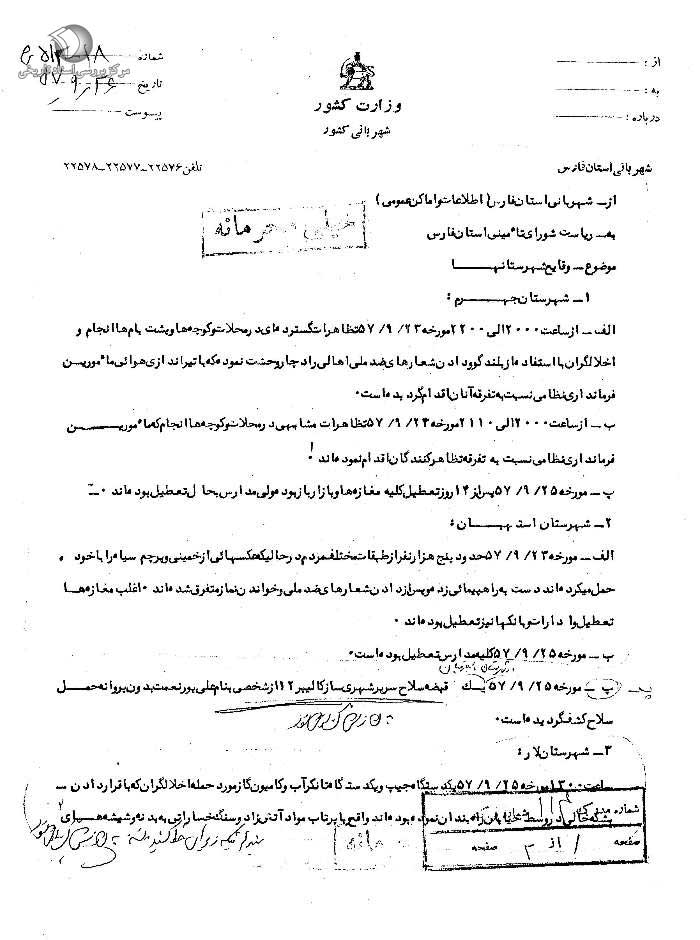 شماره ۱۸
مرکز بررسی اسناد تاریخی
تاریخ ۵۷٫۹٫۲۶
پیوست
از :
به :
درباره :
وزارت کشور
شهربانی کشور
شهربانی استان فارس
تلفن ۲۲۵۷۶-۲۲۵۷۷-۲۲۵۷۸
از - شهربانی استان فارس ( اطلاعات و اماکن عمومی )
خیلی محرمانه
به - ریاست شورای تامینی استان فارس
موضوع - وقایع شهرستانها
۱- شهرستان جهرم :
الف - از ساعت ۲۰۰۰ الی ۲۲۰۰ مورخه ۲۳ / ۹ / ۵۷ تظاهرات گسترده ای در محلات و کوچه ها و پشت بام ها انجام و
اخلالگران با استفاده از بلندگو و دادن شعارهای ضد ملی اهالی را دچار وحشت نموده که با تیراندازی هوائی مامورین
فرمانداری نظامی نسبت به تفرقه آنان اقدام گردیده است .
ب - از ساعت ۲۰۰۰ الی ۲۱۱۰ مورخه ۲۴ / ۹ / ۵۷ تظاهرات مشابهی در محلات و کوچه ها انجام که مامورین
فرمانداری نظامی نسبت به تفرقه تظاهرکنندگان اقدام نموده اند .
پ - مورخه ۲۵ / ۹ / ۵۷ پس از ۱۴ روز تعطیل کلیه مغازه ها و بازار باز بود ولی مدارس بحال تعطیل بوده اند .
۲- شهرستان استهبان :
الف - مورخه ۲۳ / ۹ / ۵۷ حدود پنج هزار نفر از طبقات مختلف مردم در حالیکه عکسهائی از خمینی و پرچم سیاه را با خود
حمل میکرده اند دست به راهپیمائی زده و پس از دادن شعارهای ضد ملی و خواندن نماز متفرق شده اند . اغلب مغازه ها
تعطیل و ادارات و بانکها نیز تعطیل بوده اند .
ب - مورخه ۲۵ / ۹ / ۵۷ کلیه مدارس تعطیل بوده است .
پ - مورخه ۲۵ / ۹ / ۵۷ یک قبضه سلاح سرپر شهری ساز کالیبر ۱۲ از شخصی بنام علی پورنعمت بدون پروانه حمل
سلاح کشف گردیده است .
۳- شهرستان لار :
ساعت ۱۳۰۰ مورخه ۲۵ / ۹ / ۵۷ یکدستگاه جیپ و یکدستگاه تانکر آب و کامیون گاز مورد حمله اخلالگران که با قرار دادن
بشکه خالی در وسط خیابان راه بندان نموده بوده اند واقع با پرتاب مواد آتش زا و سنگ خساراتی به بدنه و شیشه های
شماره مدرک
صفحه ۱ از ۲ صفحه